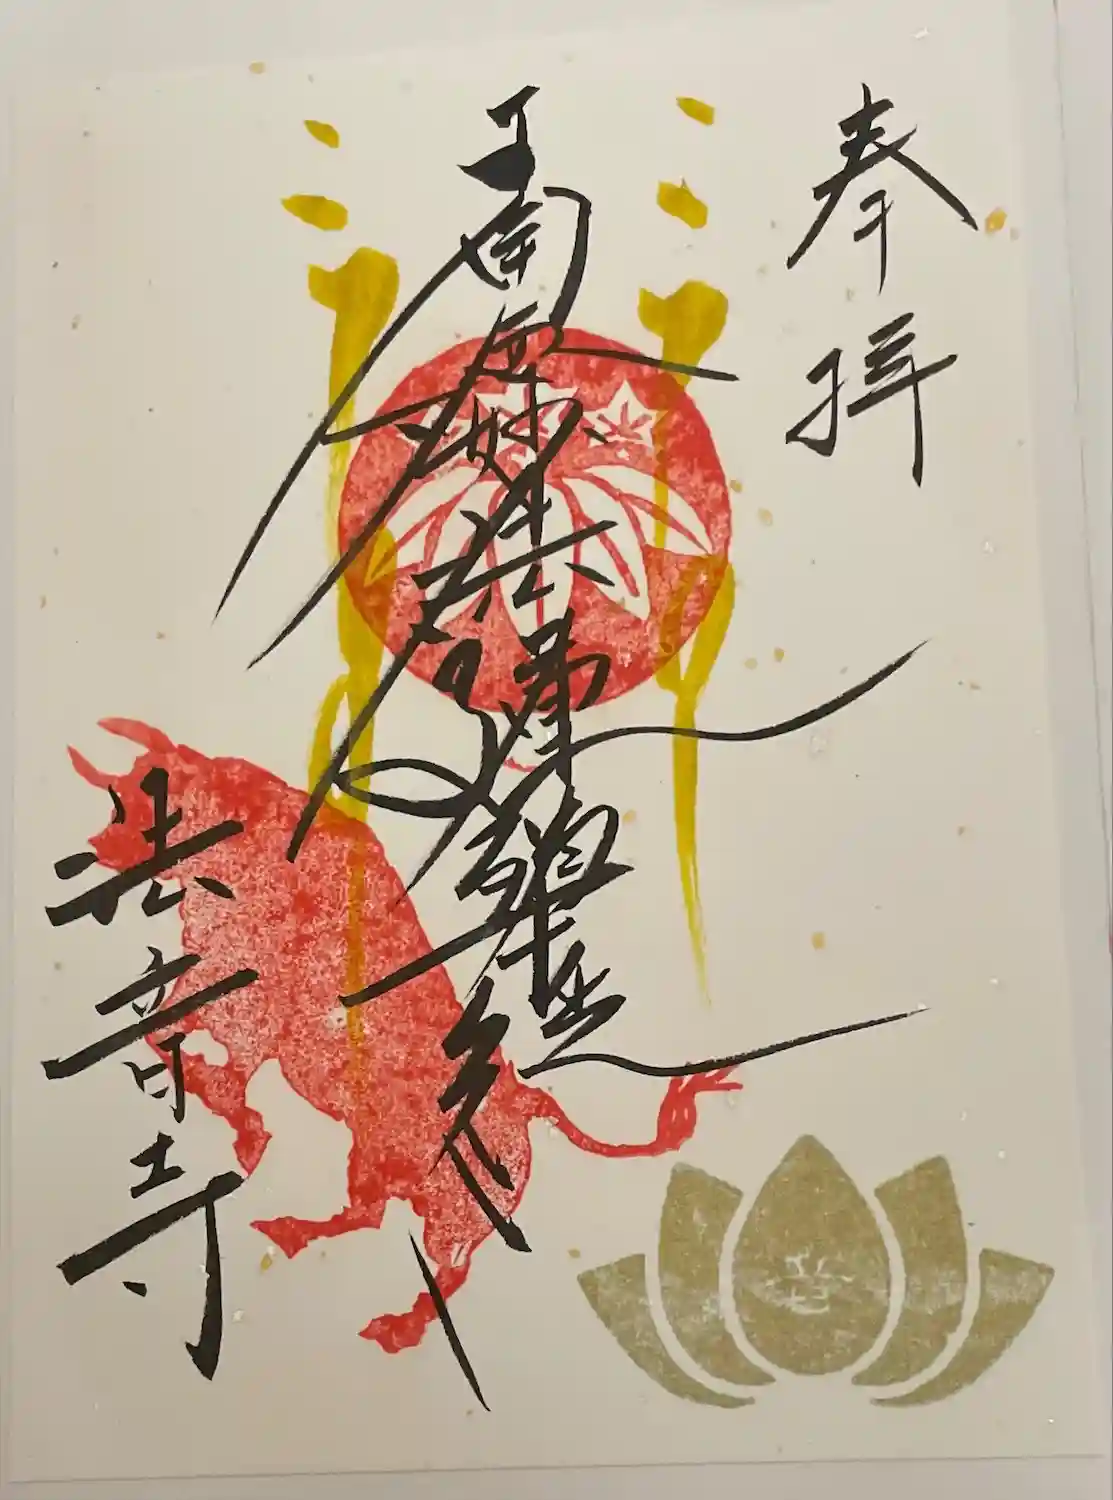 奉拝
南無妙法蓮華経
法音寺